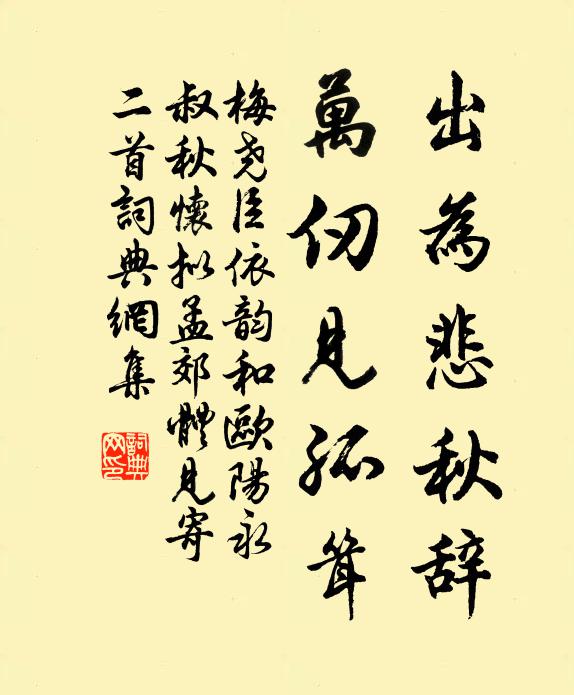 出為悲秋辞
萬仞見孤聳
梅堯臣依韵和歐陽永
叔秋懷拟孟郊體見寄
二首詞典網集
詞典网印